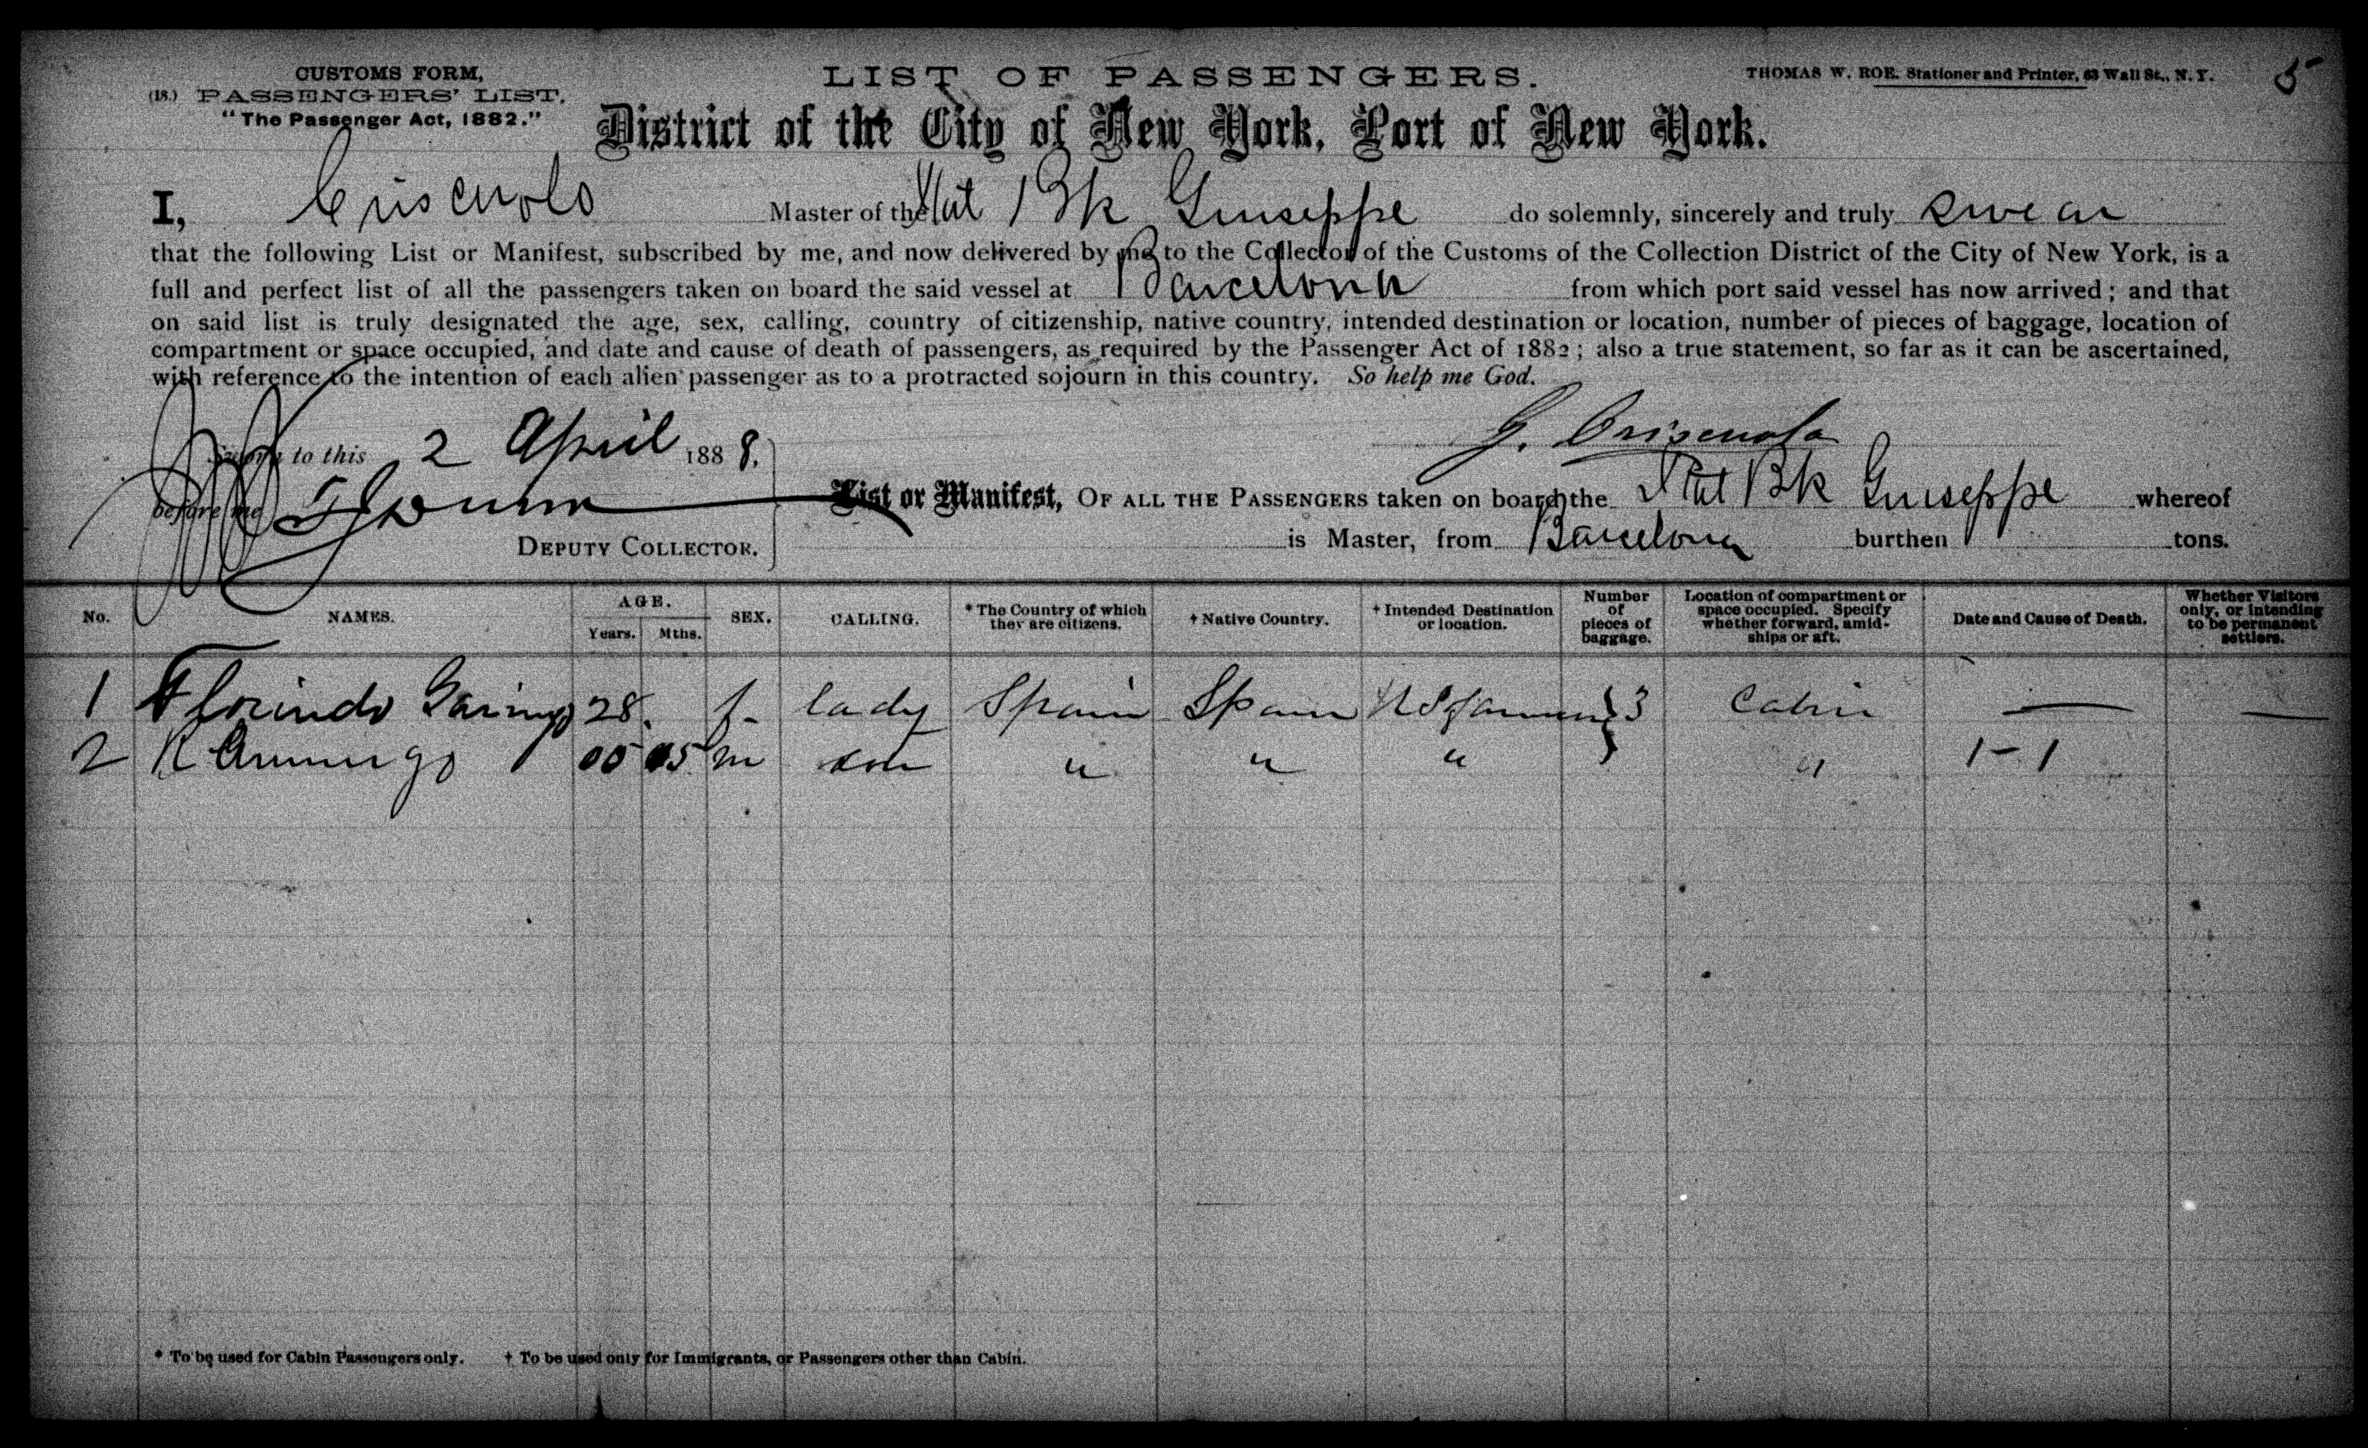 CUSTOMS FORM,
(18.) PASSENGERS' LIST.
"The Passenger Act, 1882."
LIST OF PASSENGERS.
THOMAS W. ROE. Stationer and Printer, 63 Wall St., N. Y.
5
District of the City of New York, Port of New York.
I, Criscuolo Master of the Ital Bk Giuseppe do solemnly, sincerely and truly swear
that the following List or Manifest, subscribed by me, and now delivered by me to the Collector of the Customs of the Collection District of the City of New York, is a
full and perfect list of all the passengers taken on board the said vessel at Barcelona from which port said vessel has now arrived; and that
on said list is truly designated the age, sex, calling, country of citizenship, native country, intended destination or location, number of pieces of baggage, location of
compartment or space occupied, and date and cause of death of passengers, as required by the Passenger Act of 1882; also a true statement, so far as it can be ascertained,
with reference to the intention of each alien passenger as to a protracted sojourn in this country. So help me God.
G. Criscuolo
Sworn to this 2 April 1888.
before me
DEPUTY COLLECTOR.
List or Manifest, OF ALL THE PASSENGERS taken on board the Ital Bk Giuseppe whereof
is Master, from Barcelona burthen tons.
No. NAMES. AGE. Years. Mths. SEX. CALLING. * The Country of which they are citizens. † Native Country. † Intended Destination or location. Number of pieces of baggage. Location of compartment or space occupied. Specify whether forward, amidships or aft. Date and Cause of Death. Whether Visitors only, or intending to be permanent settlers.
1 Florindo 28. f. lady Spain Spain 3 Cabin —— ——
2 05 m son " " " "
* To be used for Cabin Passengers only. † To be used only for Immigrants, or Passengers other than Cabin.